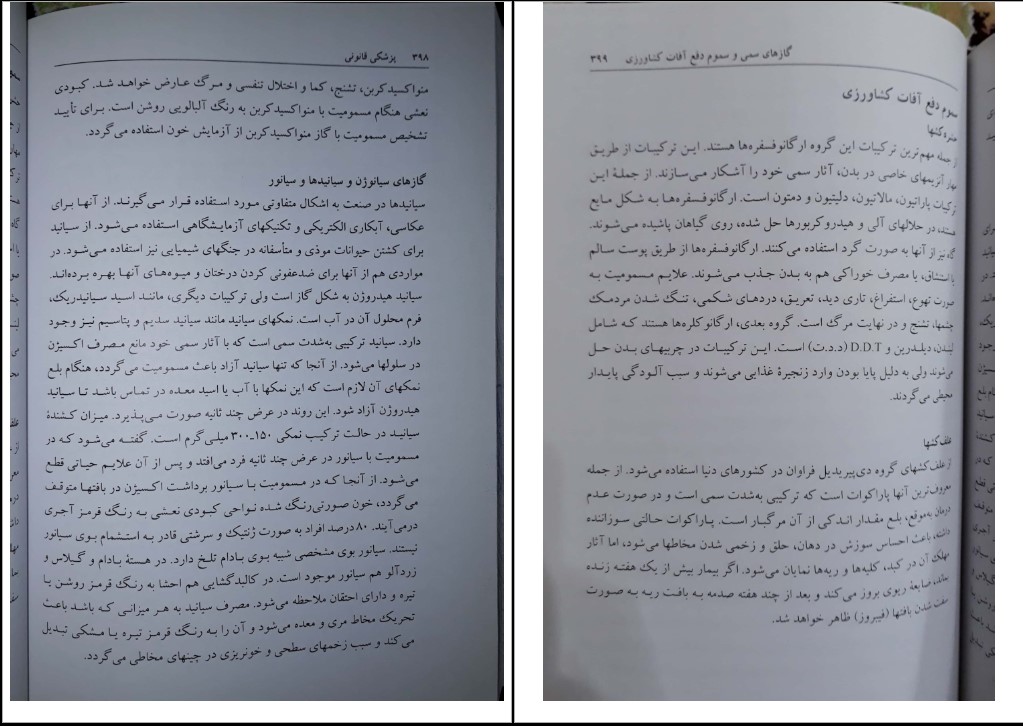 ۳۹۸ پزشکی قانونی
منواکسیدکربن، تشنج، کما و اختلال تنفسی و مرگ عارض خواهد شد. کبودی
نعشی هنگام مسمومیت با منواکسیدکربن به رنگ آلبالویی روشن است. برای تأیید
تشخیص مسمومیت با گاز منواکسیدکربن از آزمایش خون استفاده می‌گردد.
گازهای سیانوژن و سیانیدها و سیانور
سیانیدها در صنعت به اشکال متفاوتی مورد استفاده قرار می‌گیرند. از آنها برای
عکاسی، آبکاری الکتریکی و تکنیکهای آزمایشگاهی استفاده می‌شود. از سیانید
برای کشتن حیوانات موذی و متأسفانه در جنگهای شیمیایی نیز استفاده می‌شود. در
مواردی هم از آنها برای ضدعفونی کردن درختان و میوه‌های آنها بهره برده‌اند.
سیانید هیدروژن به شکل گاز است ولی ترکیبات دیگری، مانند اسید سیانیدریک،
فرم محلول آن در آب است. نمکهای سیانید مانند سیانید سدیم و پتاسیم نیز وجود
دارد. سیانید ترکیبی به‌شدت سمی است که با آثار سمی خود مانع مصرف اکسیژن
در سلولها می‌شود. از آنجا که تنها سیانید آزاد باعث مسمومیت می‌گردد، هنگام بلع
نمکهای آن لازم است که این نمکها با آب یا اسید معده در تماس باشد تا سیانید
هیدروژن آزاد شود. این روند در عرض چند ثانیه صورت می‌پذیرد. میزان کشندهٔ
سیانید در حالت ترکیب نمکی ۱۵۰ـ۳۰۰ میلی‌گرم است. گفته می‌شود که در
مسمومیت با سیانور در عرض چند ثانیه فرد می‌افتد و پس از آن علایم حیاتی قطع
می‌شود. از آنجا که در مسمومیت با سیانور برداشت اکسیژن در بافتها متوقف
می‌گردد، خون صورتی‌رنگ شده نواحی کبودی نعشی به رنگ قرمز آجری
درمی‌آیند. ۸۰ درصد افراد به صورت ژنتیک و سرشتی قادر به استشمام بوی سیانور
نیستند. سیانور بوی مشخصی شبیه بوی بادام تلخ دارد. در هستهٔ بادام و گیلاس و
زردآلو هم سیانور موجود است. در کالبدگشایی هم احشا به رنگ قرمز روشن یا
تیره و دارای احتقان ملاحظه می‌شود. مصرف سیانید به هر میزانی که باشد باعث
تحریک مخاط مری و معده می‌شود و آن را به رنگ قرمز تیره یا مشکی تبدیل
می‌کند و سبب زخمهای سطحی و خونریزی در چینهای مخاطی می‌گردد.
گازهای سمی و سموم دفع آفات کشاورزی ۳۹۹
سموم دفع آفات کشاورزی
حشره‌کشها
از جمله مهم‌ترین ترکیبات این گروه ارگانوفسفره‌ها هستند. این ترکیبات از طریق
مهار آنزیمهای خاصی در بدن، آثار سمی خود را آشکار می‌سازند. از جملهٔ این
ترکیبات پاراتیون، مالاتیون، دلیتیون و دمتون است. ارگانوفسفره‌ها به شکل مایع
هستند، در حلالهای آلی و هیدروکربورها حل شده، روی گیاهان پاشیده می‌شوند.
گاه نیز از آنها به صورت گرد استفاده می‌کنند. ارگانوفسفره‌ها از طریق پوست سالم
یا استنشاق، با مصرف خوراکی هم به بدن جذب می‌شوند. علایم مسمومیت به
صورت تهوع، استفراغ، تاری دید، تعریق، دردهای شکمی، تنگ شدن مردمک
چشمها، تشنج و در نهایت مرگ است. گروه بعدی، ارگانوکلره‌ها هستند که شامل
لیندن، دیلدرین و D.D.T (د.د.ت) است. این ترکیبات در چربیهای بدن حل
می‌شوند ولی به دلیل پایا بودن وارد زنجیرهٔ غذایی می‌شوند و سبب آلودگی پایدار
محیطی می‌گردند.
علف‌کشها
از علف‌کشهای گروه دی‌پیریدیل فراوان در کشورهای دنیا استفاده می‌شود. از جمله
معروف‌ترین آنها پاراکوات است که ترکیبی به‌شدت سمی است و در صورت عدم
درمان به‌موقع، بلع مقدار اندکی از آن مرگبار است. پاراکوات حالتی سوزاننده
داشته، باعث احساس سوزش در دهان، حلق و زخمی شدن مخاطها می‌شود، اما آثار
مهلک آن در کبد، کلیه‌ها و ریه‌ها نمایان می‌شود. اگر بیمار بیش از یک هفته زنده
بماند، ضایعهٔ ریوی بروز می‌کند و بعد از چند هفته صدمه به بافت ریه به صورت
سفت شدن بافتها (فیبروز) ظاهر خواهد شد.